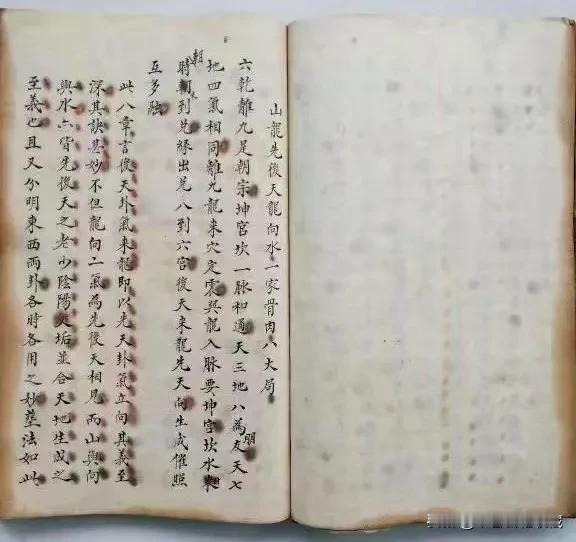 山龍先後天龍向水一家骨肉八大局
六乾離九足朝宗坤宮坎一脉和通天三地八為友天七
地四氣相同離九龍來穴定震巽龍入脉要坤宮坎水來
時朝到兑終出艮八到六宮後天来龍先天向生成催照
互多融
此八章言後天卦氣來龍即以先天卦氣立向其義至
深其訣甚妙不但龍向二氣為先後天相見而山與向
與水亦皆先後天之老少陰陽交垢並合天地生成之
至義也且又分明東西兩卦各時各用之妙塟法如此
朝
明